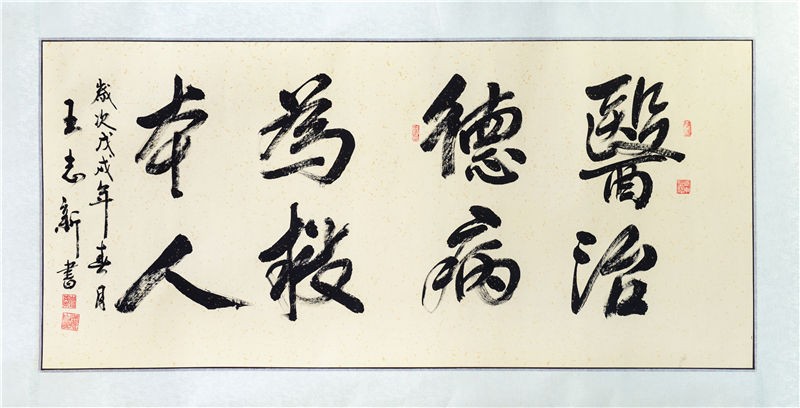 醫德為本
治病救人
歲次戊戌年春月
王志新書